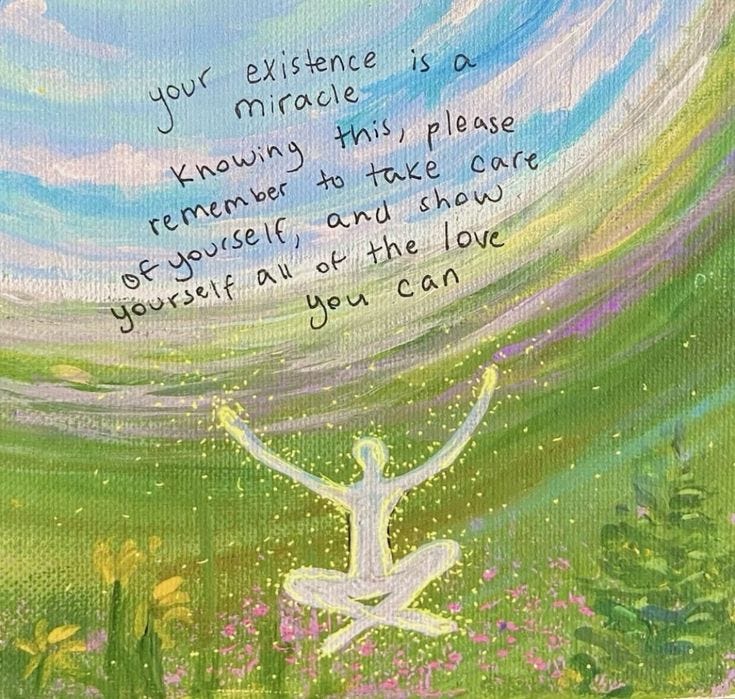 your existence is a
miracle
Knowing this, please
remember to take care
of yourself, and show
yourself all of the love
you can